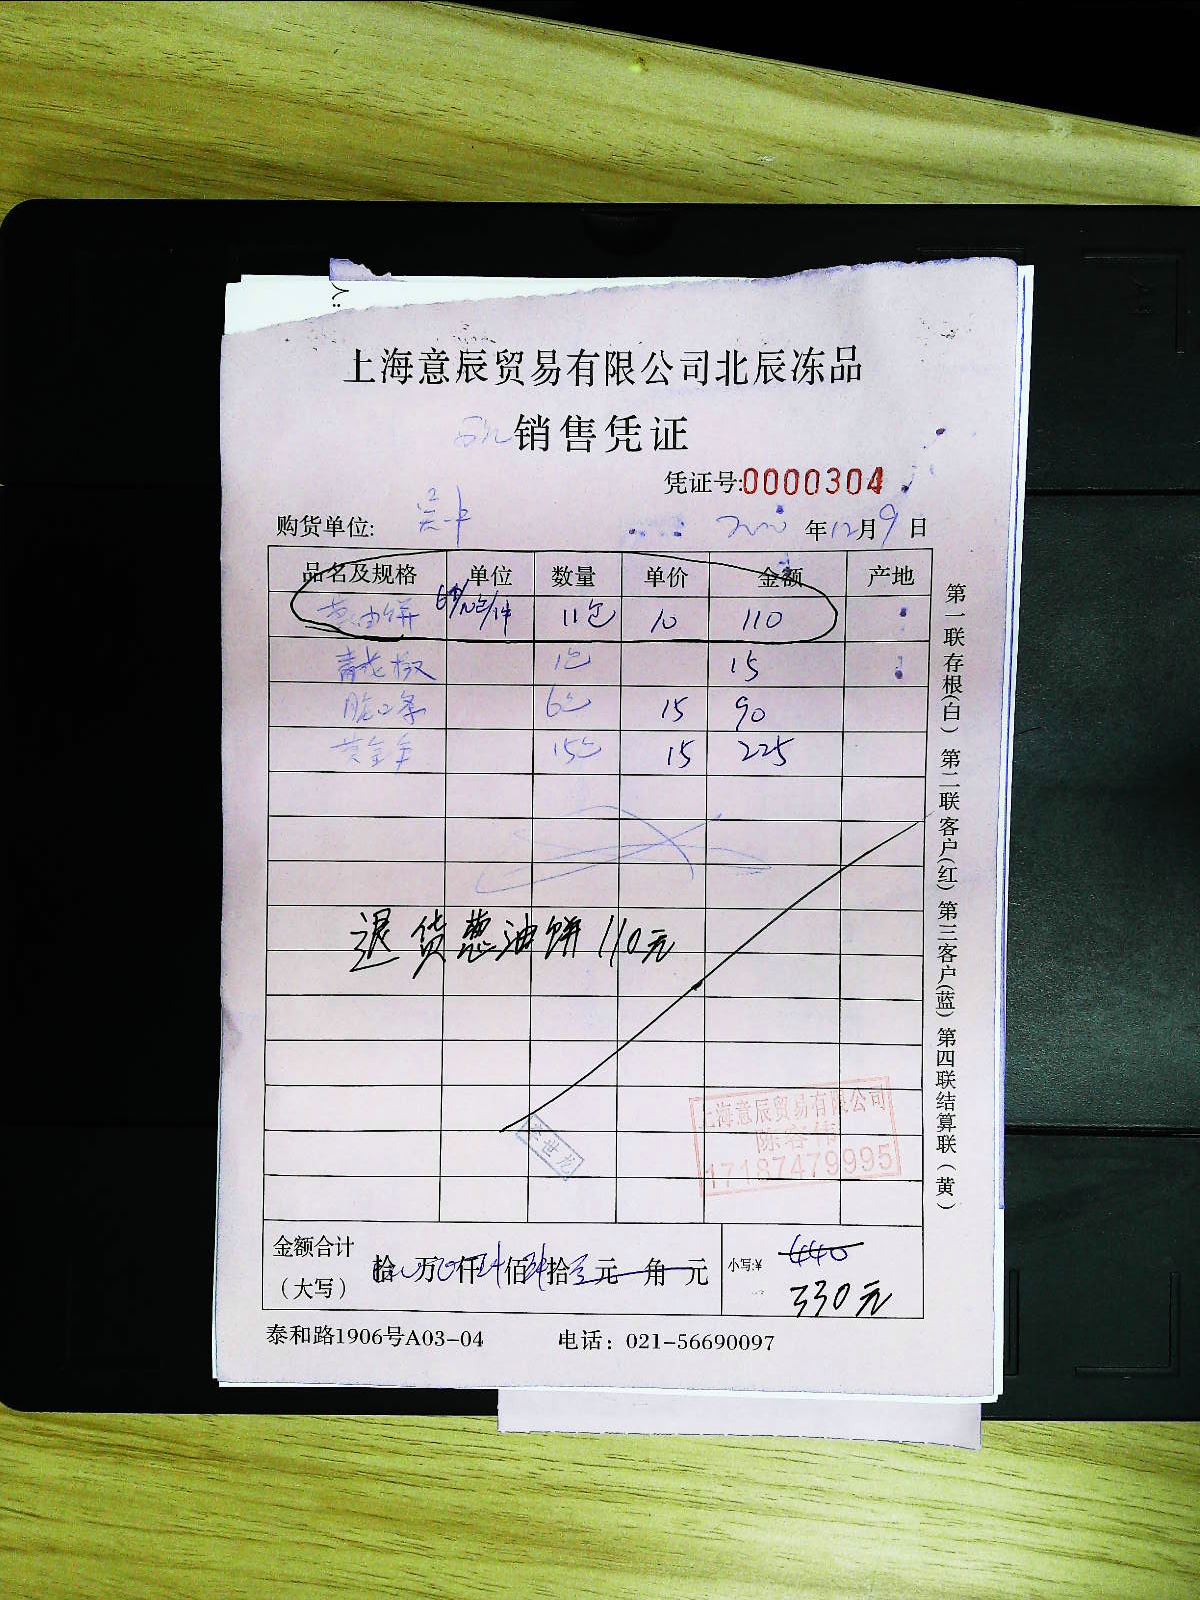 人:
上海意辰贸易有限公司北辰冻品
销售凭证
凭证号:0000304
购货单位:
2020年12月9日
品名及规格 单位 数量 单价 金额 产地
葱油饼 11包 10 110
青花椒 1包 15
脆口条 6包 15 90
黄金羊 15包 15 225
退货葱油饼110元
上海意辰贸易有限公司
陈容伟
17187479995
金额合计 拾 万 仟 佰 拾 元 角 元 小写:¥ 440
（大写） 330元
泰和路1906号A03-04 电话：021-56690097
第一联存根(白) 第二联客户(红) 第三客户(蓝) 第四联结算联(黄)